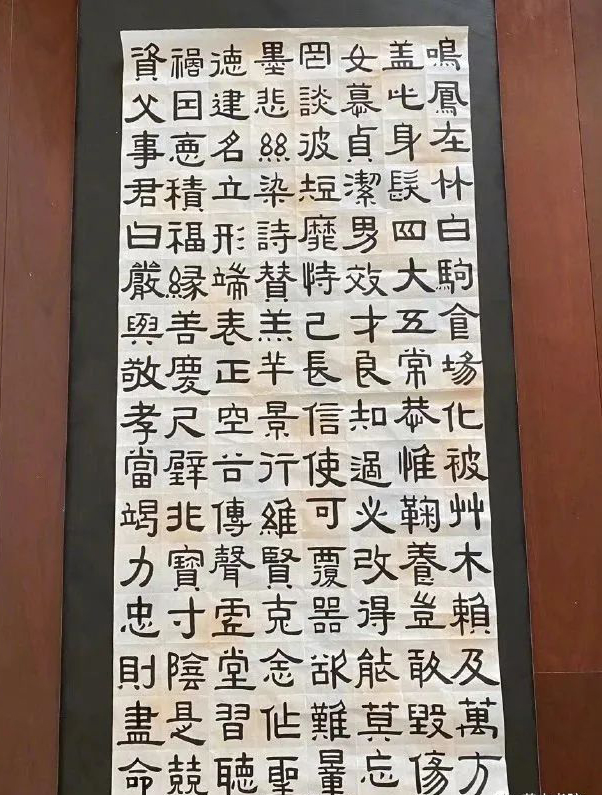 鳴鳳在竹白駒食場化被艸木賴及萬方
盖此身髮四大五常恭惟鞠養豈敢毀傷
女慕貞潔男效才良知過必改得能莫忘
罔談彼短靡恃己長信使可覆器欲難量
墨悲絲染詩贊羔羊景行維賢克念作聖
德建名立形端表正空谷傳聲虛堂習聽
禍因惡積福緣善慶尺璧非寶寸陰是競
資父事君曰嚴與敬孝當竭力忠則盡命